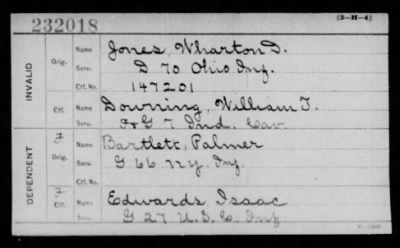 232018
(3-H-4)
INVALID
Orig. Name Jones, Wharton D.
Serv. D 70 Ohio Inf.
Ctf. No. 147201
Ctf. Name Downing, William T.
Serv. F+G 7 Ind. Cav.
DEPENDENT
Orig. Name Bartlett, Palmer
Serv. G 66 NY. Inf.
Ctf. No.
Ctf. Name Edwards Isaac
Serv. G 27 U.S.C. Inf